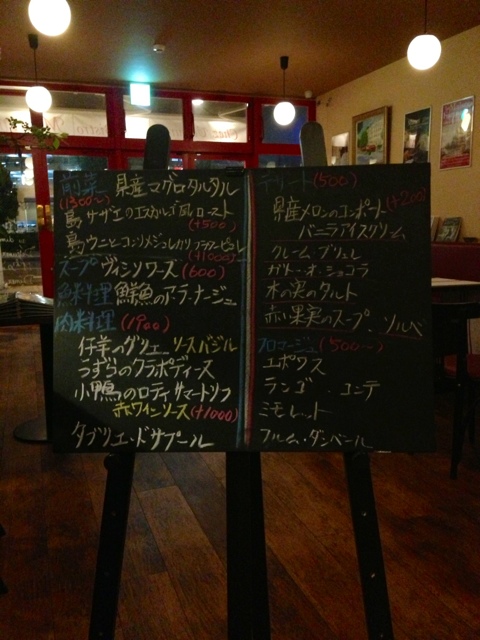 前菜 県産マグロタルタル
(1300〜)
島サザエのエスカルゴ風ロースト
(+500)
島ウニとコンソメジュレ カリフラワーピュレ
(+1000)
スープ ヴィシソワーズ (600)
魚料理 鮮魚のア・ラ・ナージュ
肉料理 (1900)
仔羊のグリエ ソースバジル
うずらのクラポディーヌ
小鴨のロティ サマートリフ
赤ワインソース(+1000)
タブリエ・ド・サプール
デザート (500)
県産メロンのコンポート (+200)
バニラアイスクリーム
クレーム・ブリュレ
ガトー・オ・ショコラ
木の実のタルト
赤い果実のスープ、ソルベ
フロマージュ (500〜)
エポワス
ラングル コンテ
ミモレット
フルム・ダンベール